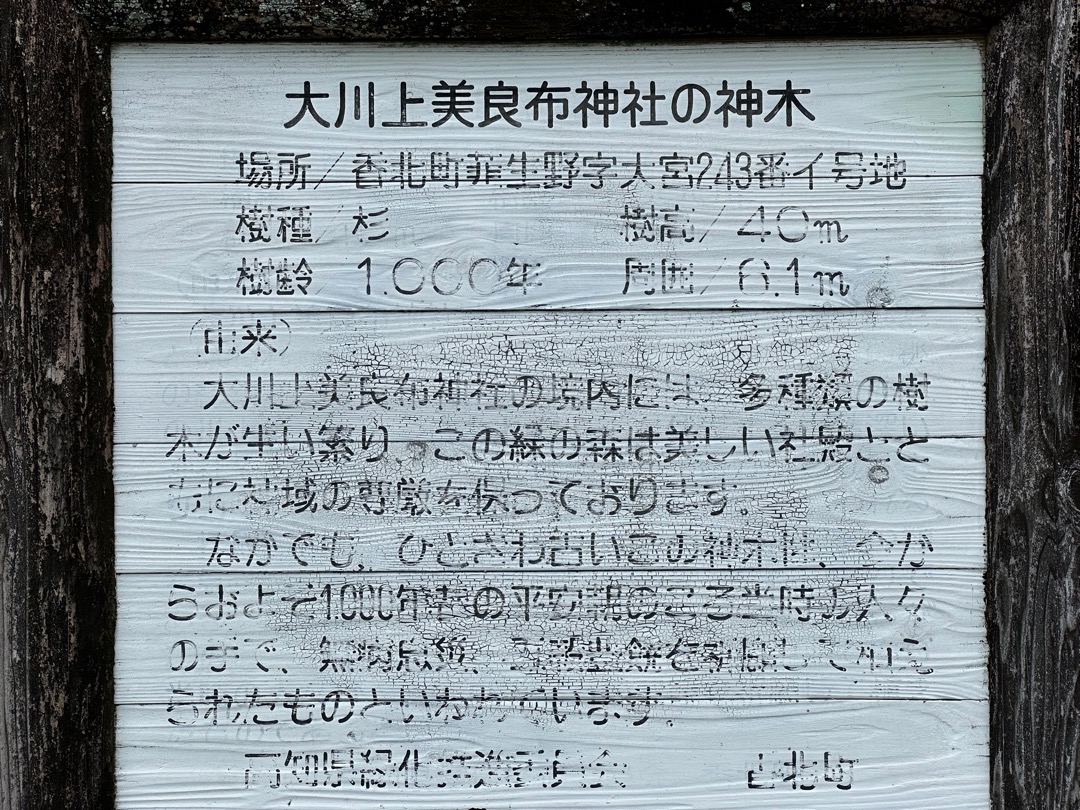 大川上美良布神社の神木
場所/香北町韮生野字大宮243番イ号地
樹種/杉 樹高/40m
樹齢 1.000年 周囲/6.1m
(由来)
大川上美良布神社の境内には、多種類の樹
木が生い繁り、この緑の森は美しい社殿とと
もに神域の尊厳を保っております。
なかでも、ひときわ古いこの神木は、今か
らおよそ1.000年前の平安朝のころ当時の人々
の手で、無病息災、を祈願して植え
られたものといわれています。
高知県緑化推進委員会 香北町